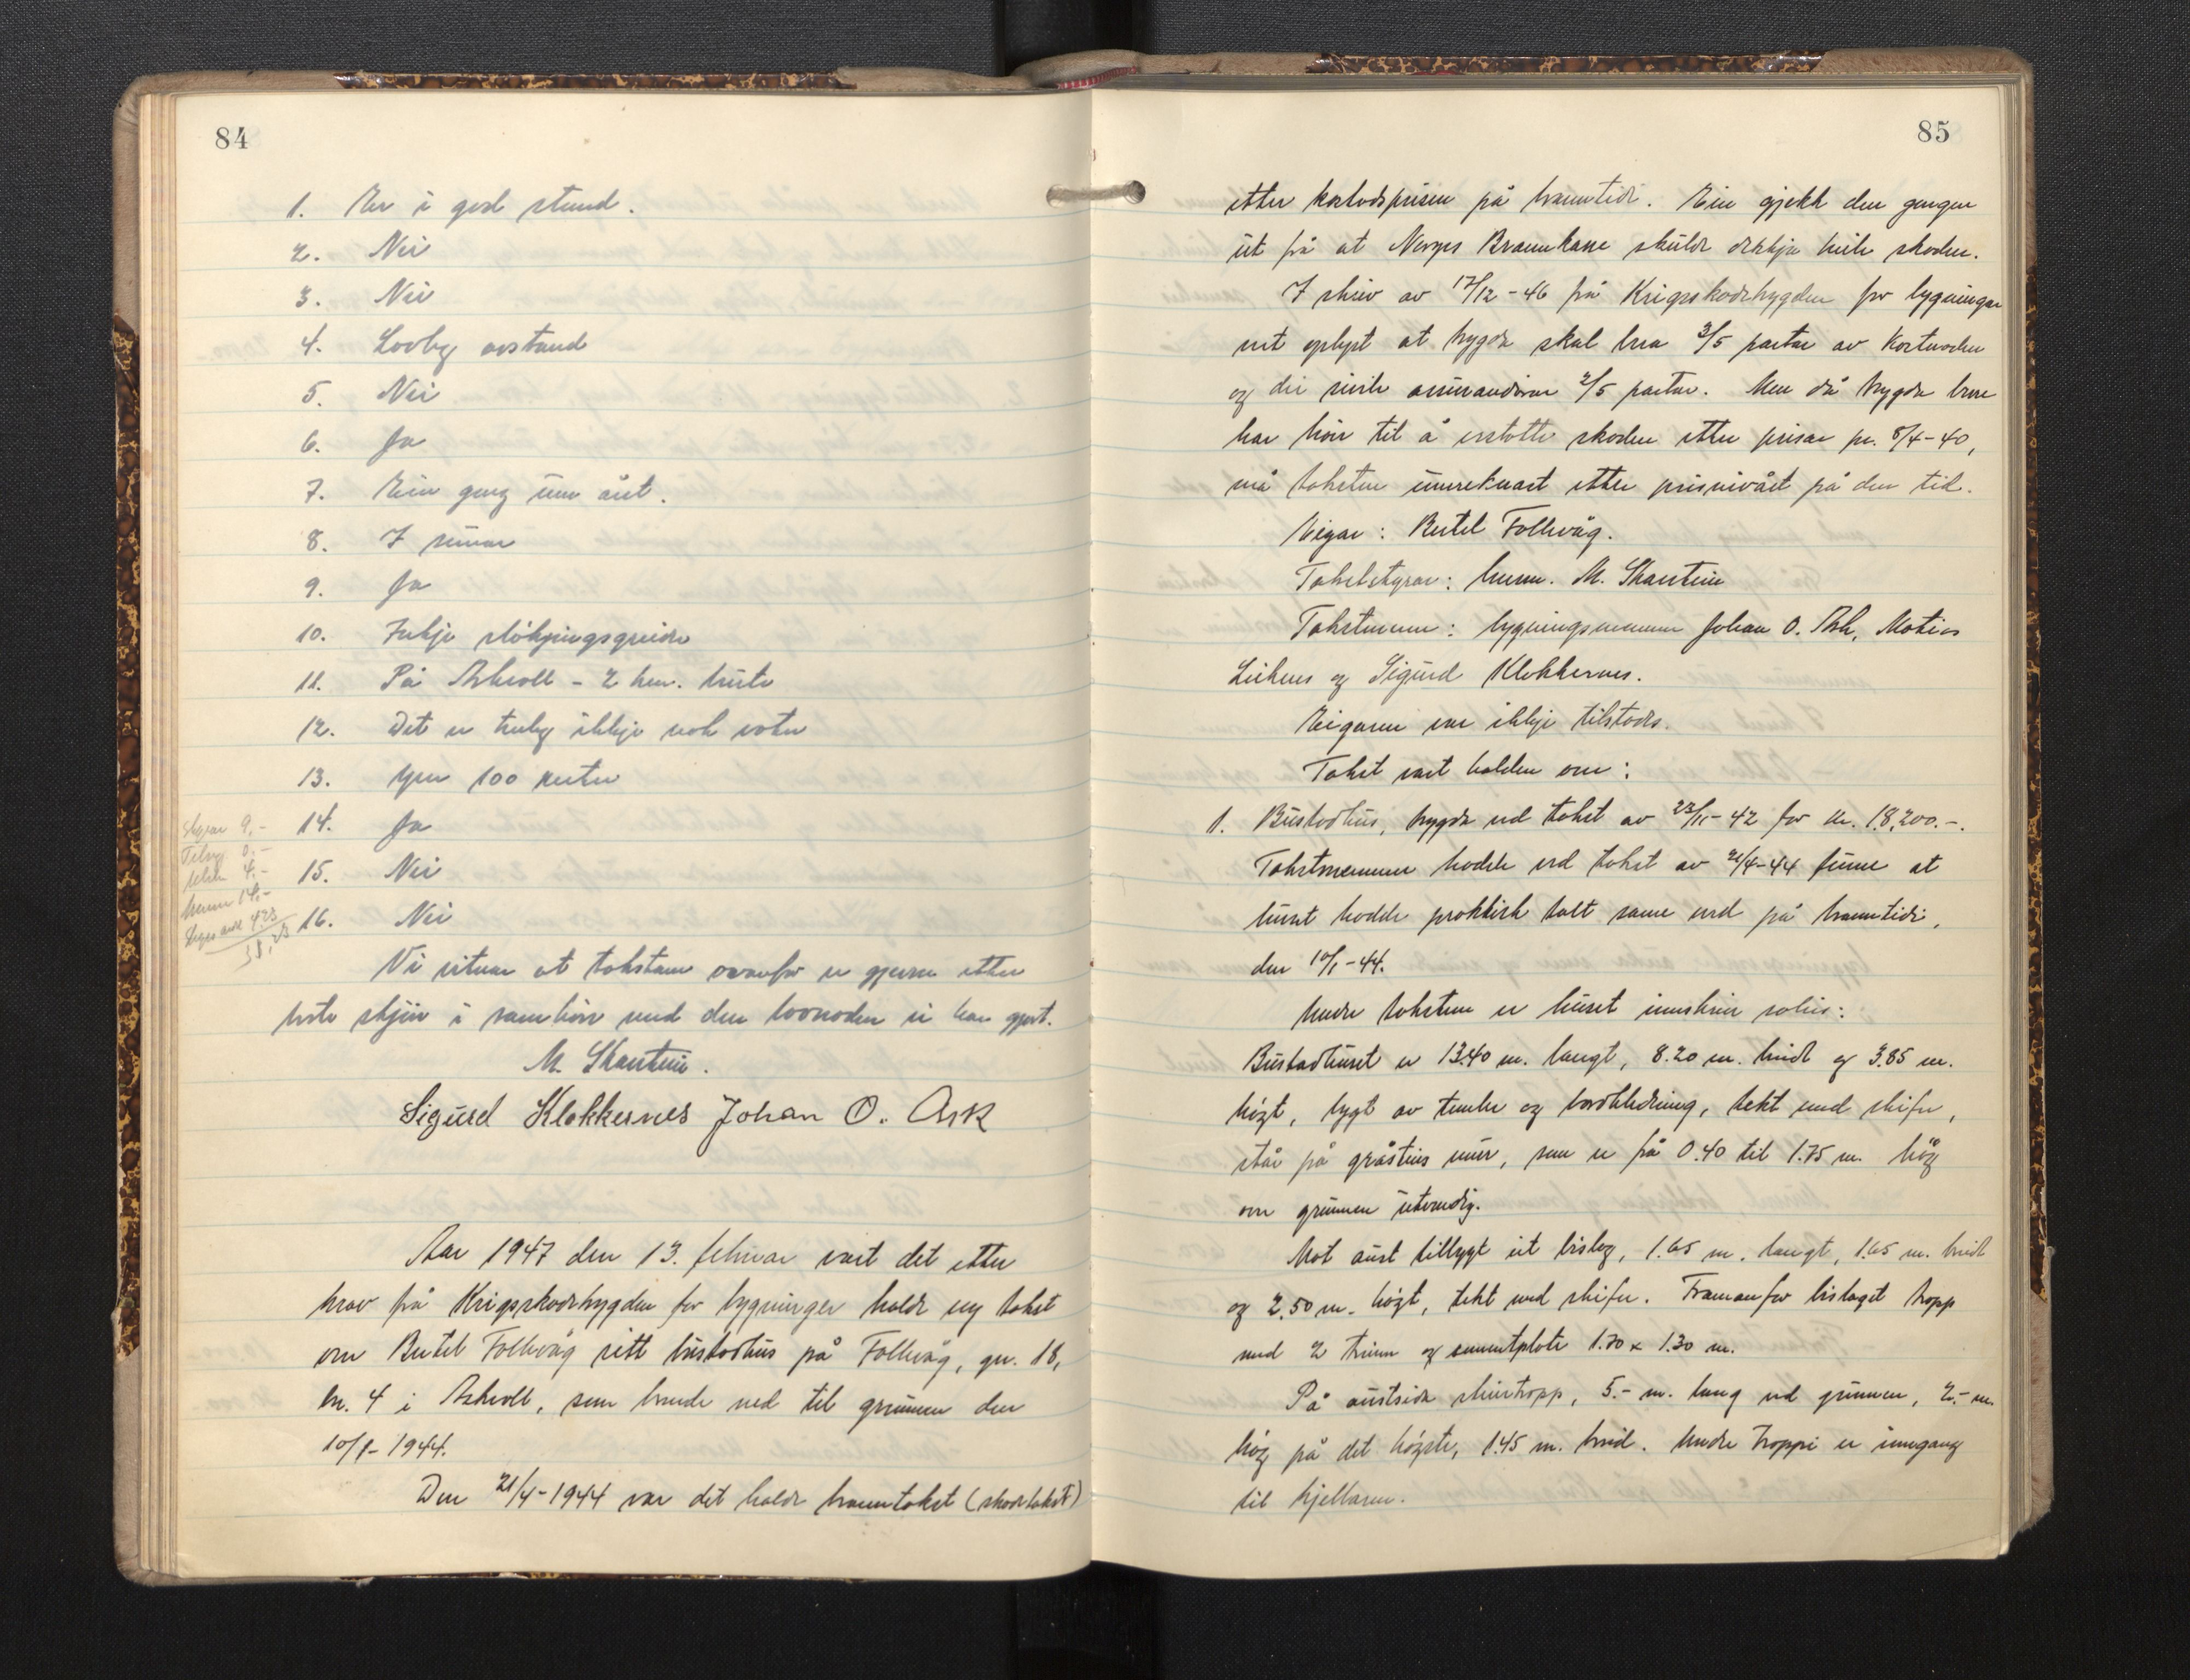 84
1. Er i god stand.
2. Nei
3. Nei
4. Lovleg avstand
5. Nei
6. Ja
7. Ein gong um året.
8. I
9. Ja
10. Inkje sløkjingsgreide
11. På Askvoll - 2 km. burte
12. Det er truleg ikkje nok vatn
13. Yver 100 meter
14. Ja
15. Nei
16. Nei
Styrar 9.-
0.-
4.-
14.-
4.23
Vi vitnar at takstane ovanfor er gjevne etter
beste skjøn i samhøve med den lovnaden vi har gjort.
M. Skarstein.
Sigurd Klokkernes Johan O. Ask
Aar 1947 den 13. februar vart det etter
krav frå Krigsskadetrygden for bygninger halde ny takst
over Bertel Follevåg sitt bustadhus på Follevåg, gnr. 18,
bnr. 4 i Askvoll, som brunde ned til grunnen den
10/1-1944.
Den 21/4-1944 var det halde branntakst (skadetakst)
85
etter kostnadsprisen på branntidi. Ein gjekk den gongen
ut frå at Norges Brannkasse skulde dekkja heile skaden.
I skriv av 17/12-46 frå Krigsskadetrygden for bygningar
vert oplyst at trygda skal bera 3/5 partar av kostnaden
og dei sivile assurandørar 2/5 partar. Men då trygda berre
har høve til å erstatte skaden etter prisar pr. 8/4-40,
må taksten umreknast etter prisnivået på den tid.
Eigar: Bertel Follevåg.
Takststyrar: lensm. M. Skarstein
Takstmenn: bygningsmennene Johan O. Ask, Matias
og Sigurd Klokkernes.
Eigaren var ikkje tilstades.
Takst vart halden over:
1. Bustadhus, trygda ved takst av 23/11-42 for kr. 18,200.-.
Takstmennene hadde ved takst av 21/4-44 funne at
huset hadde praktisk talt same verd på branntidi,
den 10/1-44.
Under taksten er huset innskrive soleis:
Bustadhuset er 13.40 m. langt, 8.20 m. breidt og 3.85 m.
høgt, bygt av tømmer og bordkledning, tekt med skifer,
står på gråsteins mur, som er frå 0.40 til 1.75 m. høg
over grunnen utvendig.
Mot aust tilbygt eit bislag, 1.65 m. langt, 1.65 m. breidt
og 2.50 m. høgt, tekt med skifer. Framanfor bislaget tropp
med 2 trinn og sementplate 1.70 x 1.30 m.
På austsida steintropp, 5.- m. lang ved grunnen, 2.- m.
høg på det høgste, 1.45 m. breid. Under troppi er inngang
til kjellaren.